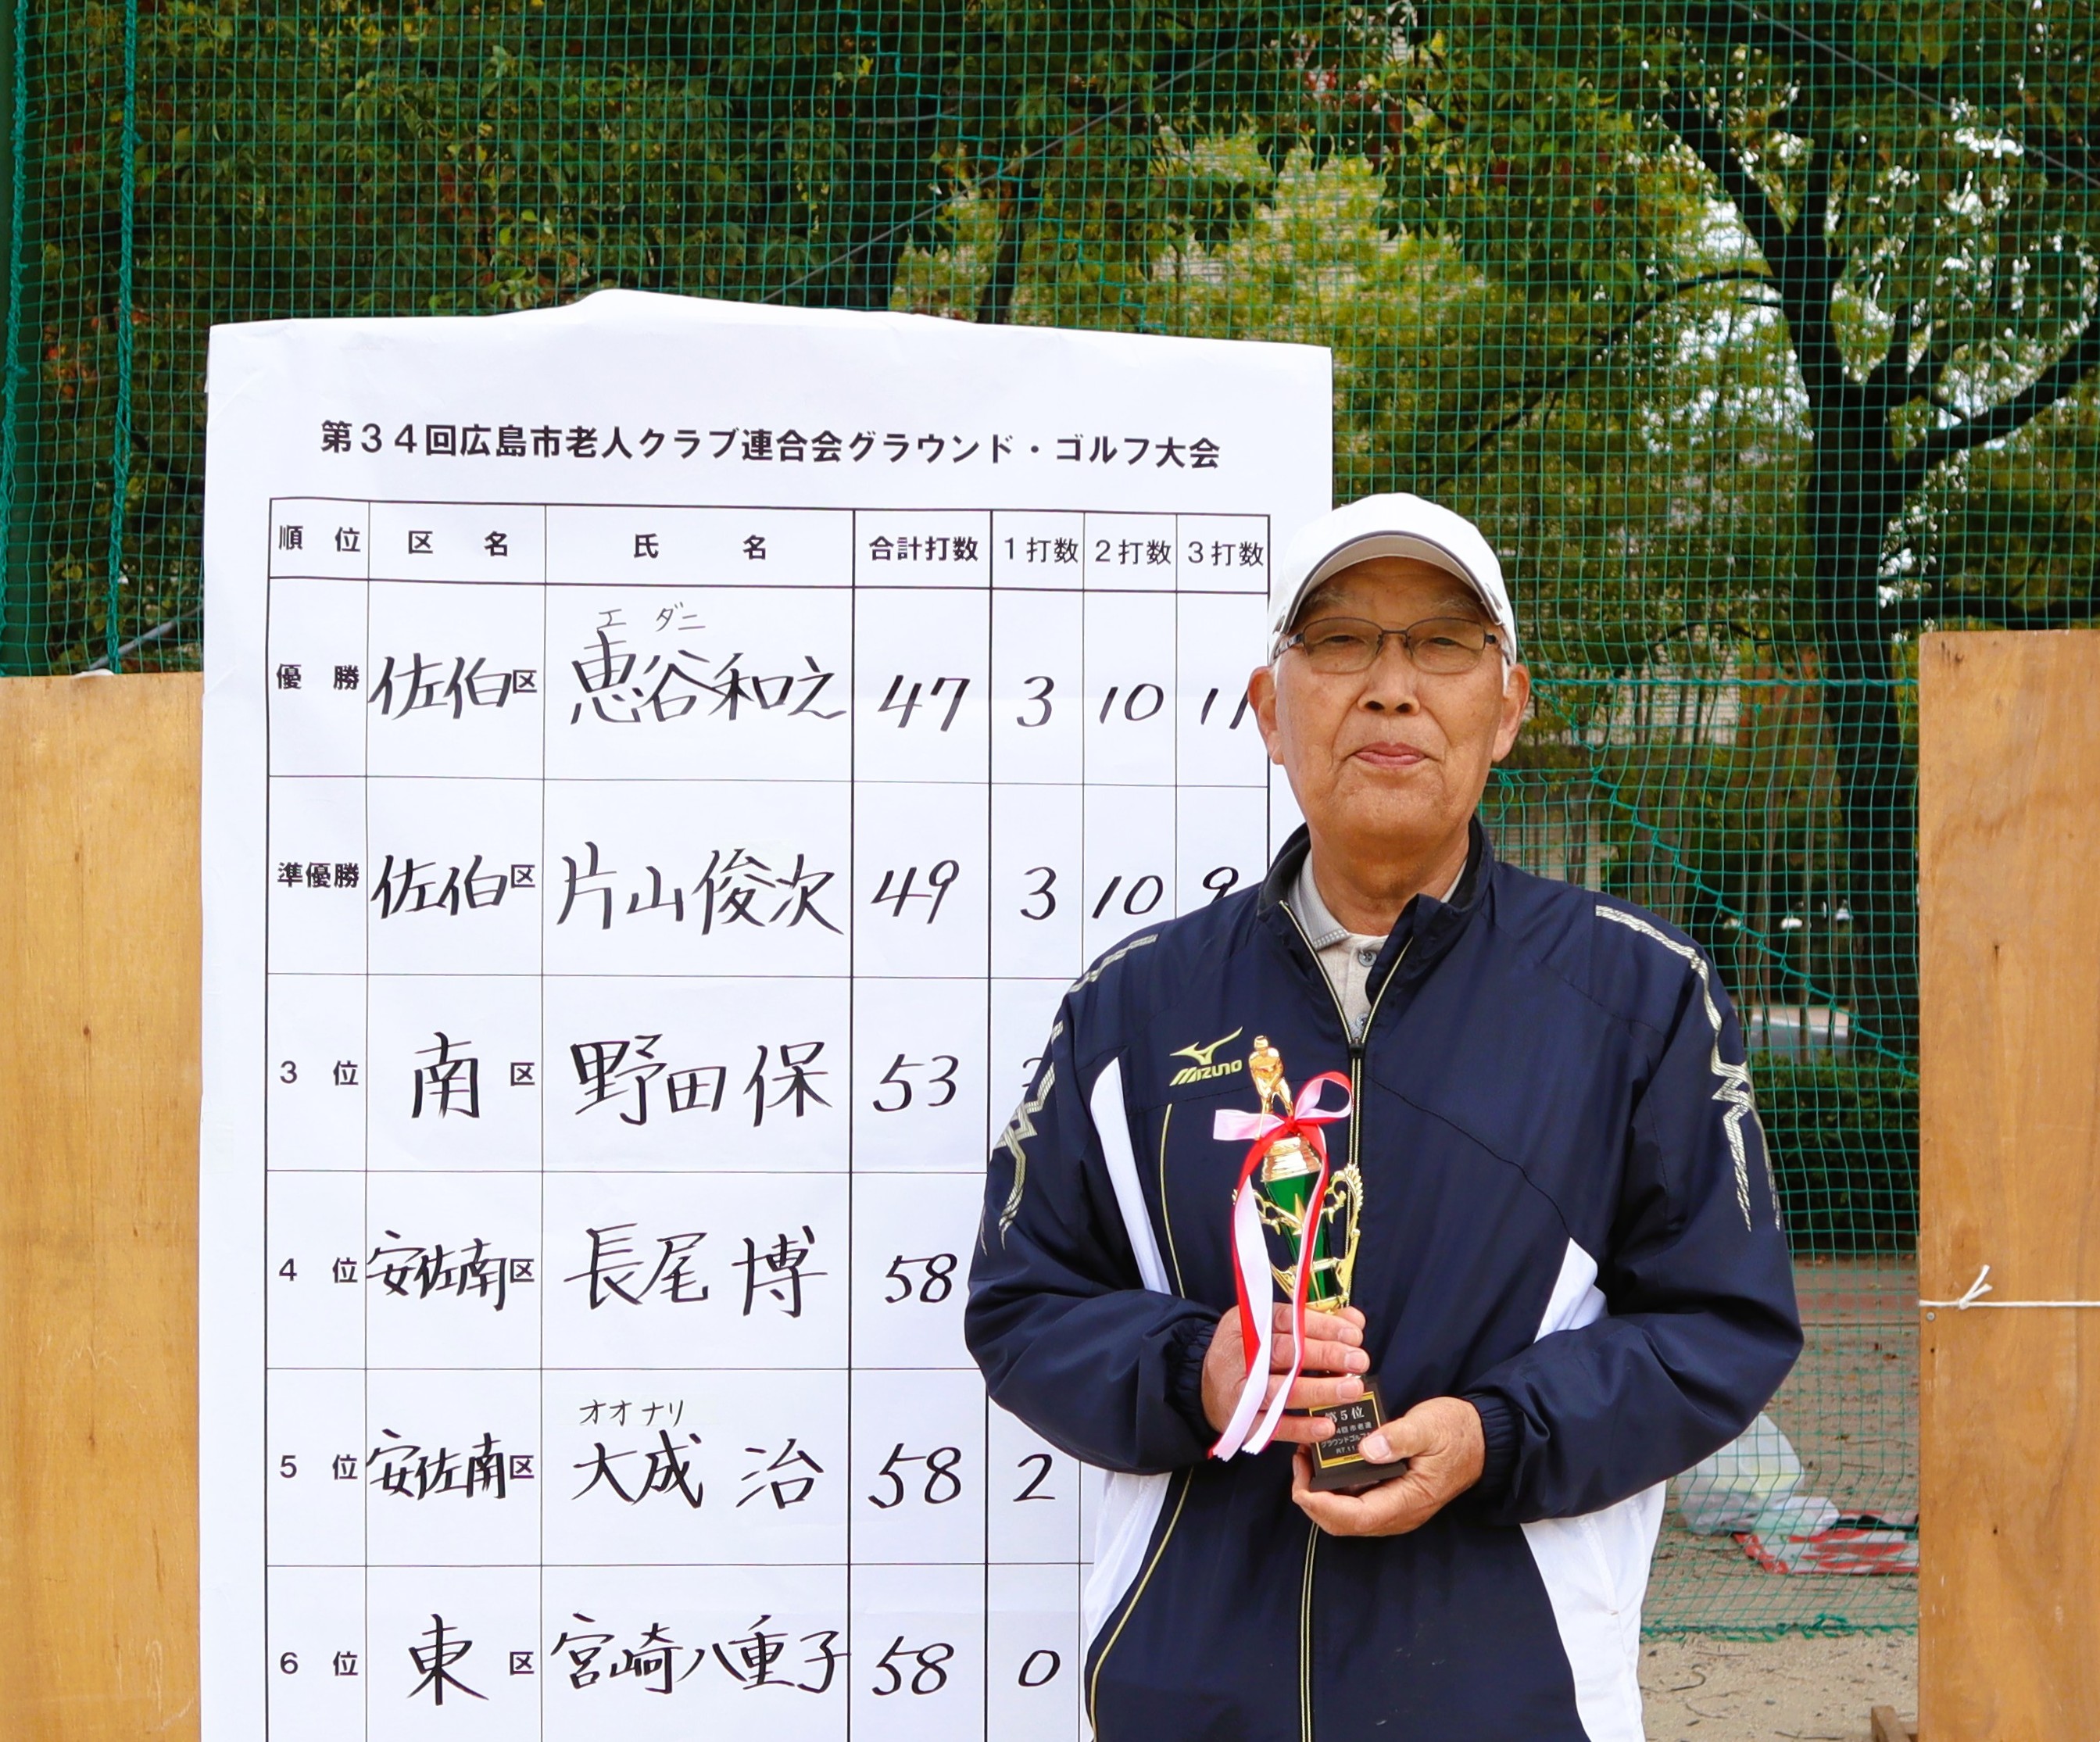 第34回広島市老人クラブ連合会グラウンド・ゴルフ大会
順位 区名 氏名 合計打数 1打数 2打数 3打数
エダニ
優勝 佐伯区 恵谷和之 47 3 10 11
準優勝 佐伯区 片山俊次 49 3 10 9
3位 南区 野田保 53
4位 安佐南区 長尾博 58
オオナリ
5位 安佐南区 大成治 58 2
6位 東区 宮崎八重子 58 0
MIZUNO
第5位
4回市老連
グラウンドゴルフ
R7.11